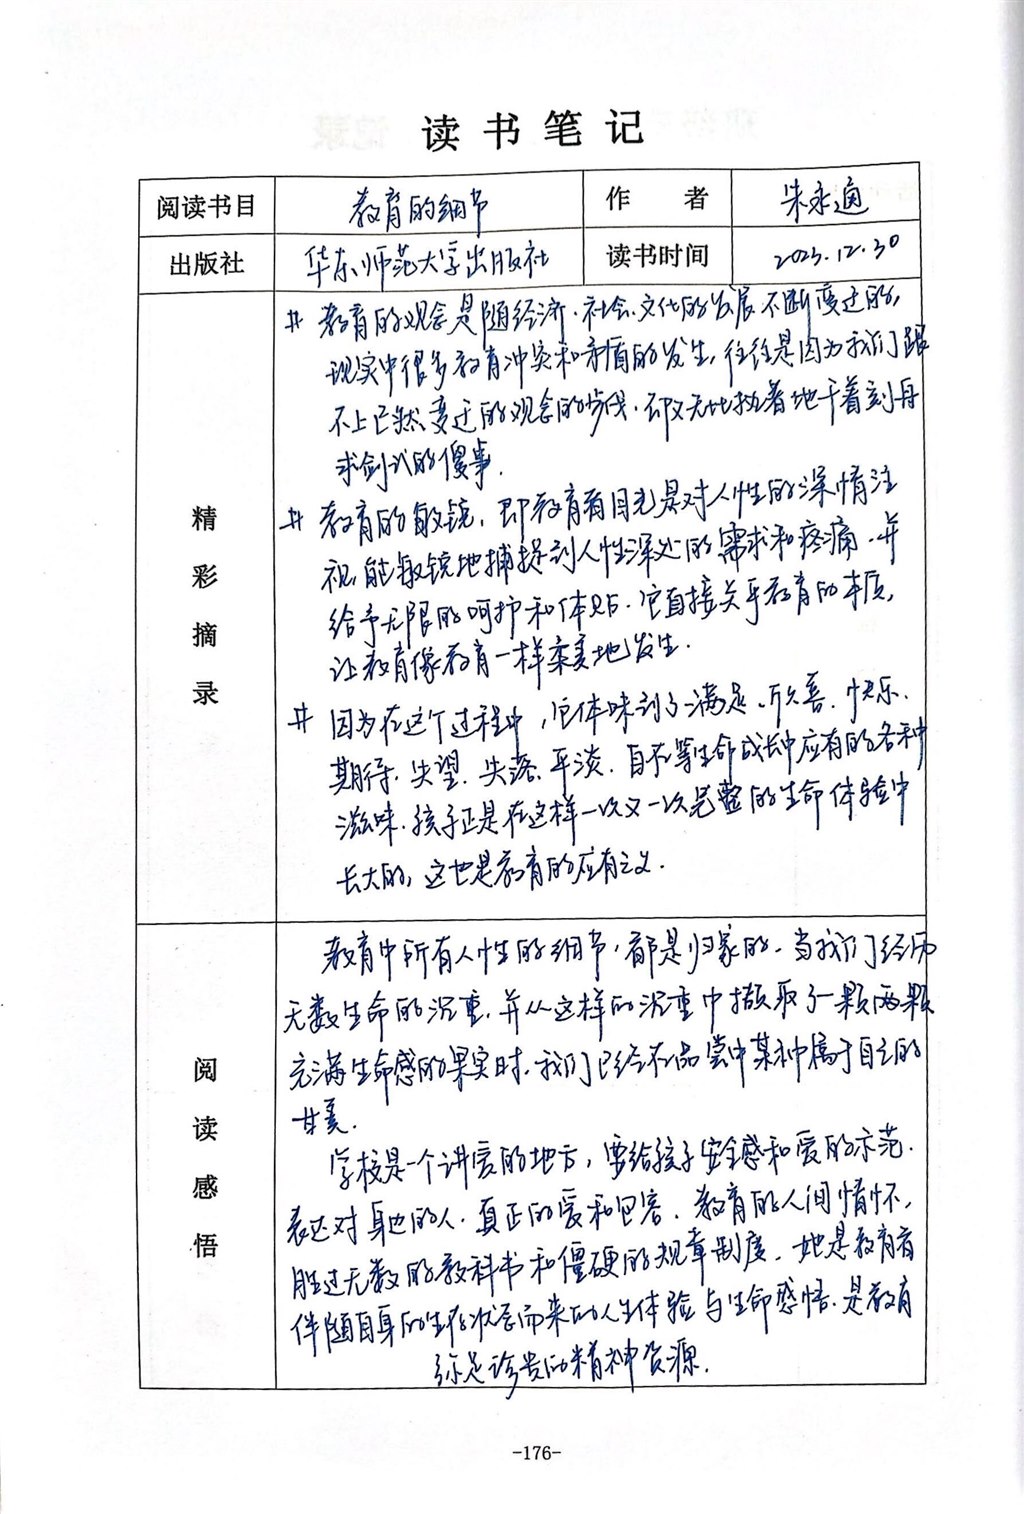 读书笔记
阅读书目 教育的细节 作者 朱永通
出版社 华东师范大学出版社 读书时间 2023.12.30
精彩摘录
# 教育的观念是随经济、社会、文化的发展不断变迁的,
现实中很多教育冲突和矛盾的发生,往往是因为我们跟
不上已然变迁的观念的步伐,却又无比执着地干着刻舟
求剑式的傻事.
# 教育的敏锐,即教育者目光是对人性的深情注
视,能敏锐地捕捉到人性深处的需求和疼痛,并
给予无限的呵护和体贴.它直接关乎教育的本质,
让教育像教育一样栾美地发生.
# 因为在这个过程中,它体味到了满足、欣喜、快乐、
期待、失望、失落、平淡、自在等生命成长中应有的各种
滋味.孩子正是在这样一次又一次完整的生命体验中
长大的,这也是教育的应有之义.
阅读感悟
教育中所有人性的细节,都是归家的.当我们经历
无数生命的沉重,并从这样的沉重中撷取了一颗两颗
充满生命感的果实时,我们已经在品尝中某种属于自己的
甘美.
学校是一个讲爱的地方,要给孩子安全感和爱的示范.
表达对身边的人,真正的爱和包容.教育的人间情怀,
胜过无数的教科书和僵硬的规章制度.她是教育者
伴随自身的生存状态而来的人生体验与生命感悟.是教育
弥足珍贵的精神资源.
-176-